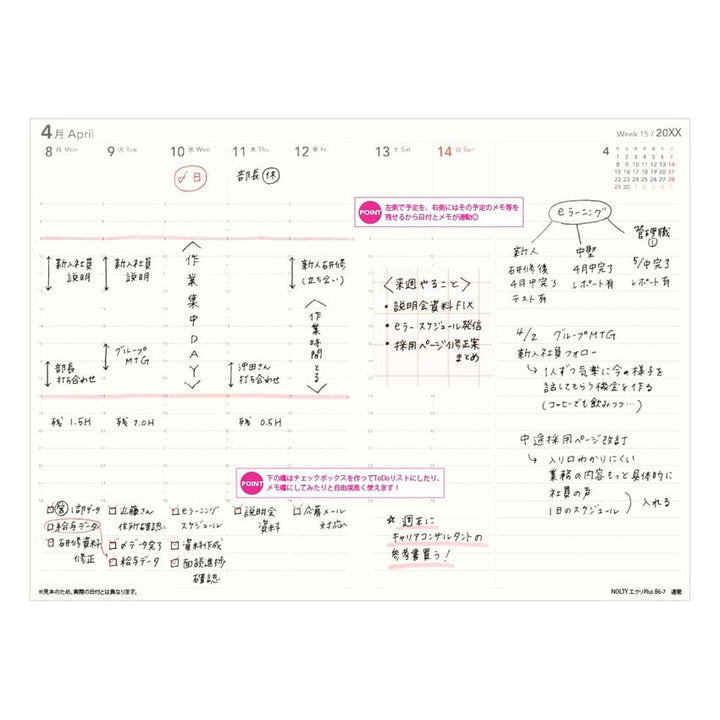 4月 April
Week 15 / 20XX
8 月 Mon
9 火 Tue
10 水 Wed
11 木 Thu
12 金 Fri
13 土 Sat
14 日 Sun
4
月 火 水 木 金 土 日
1 2 3 4 5 6 7
8 9 10 11 12 13 14
15 16 17 18 19 20 21
22 23 24 25 26 27 28
29 30
〆日
部長 休
POINT
左側で予定を、右側にはその予定のメモ等を
残せるから日付とメモが連動◎
新入社員
説明
部長
打ち合わせ
新入社員
説明
グループ
MTG
作業集中DAY
沖田さん
打ち合わせ
新人研修
(立ち会い)
作業時間とる
残 1.5H
残 1.0H
残 0.5H
<来週やること>
• 説明会資料FIX
• eラースケジュール発信
• 採用ページ修正案
まとめ
eラーニング
新人
研修後
4月中完了
テスト有
中堅
4月中完了
レポート有
管理職
5/中完了
レポート有
4/2 グループMTG
新入社員フォロー
→ 1人ずつ気楽に今の様子を
話してもらう機会を作る
(コーヒーでも飲みつつ…)
中途採用ページ改訂
→ 入り口わかりにくい
業務の内容もっと具体的に
社員の声
1日のスケジュール
入れる
POINT
下の欄はチェックボックスを作ってToDoリストにしたり、
メモ欄にしてみたりと自由度高く使えます!
1部データ
給与データ
研修資料
修正
近藤さん
休所確認
〆データ完了
給与データ
eラーニング
スケジュール
資料作成
面談進捗
確認
説明会
資料
応募メール
対応
☆ 週末に
キャリアコンサルタントの
参考書買う!
※見本のため、実際の日付とは異なります。
NOLTY エクリPlus B6-7 週間